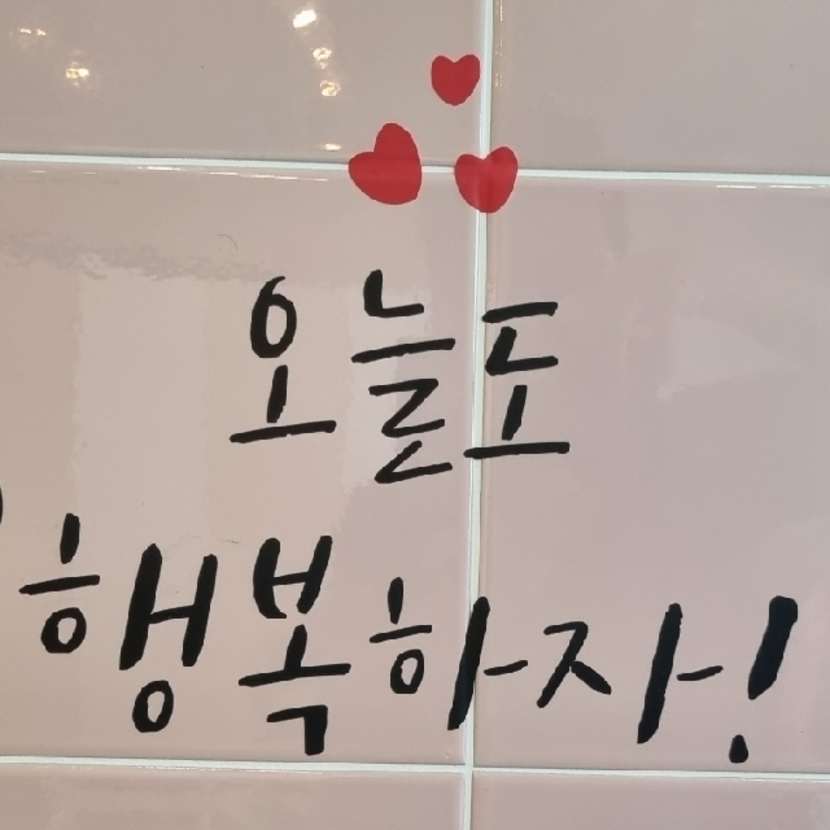 오늘도
행복하자!